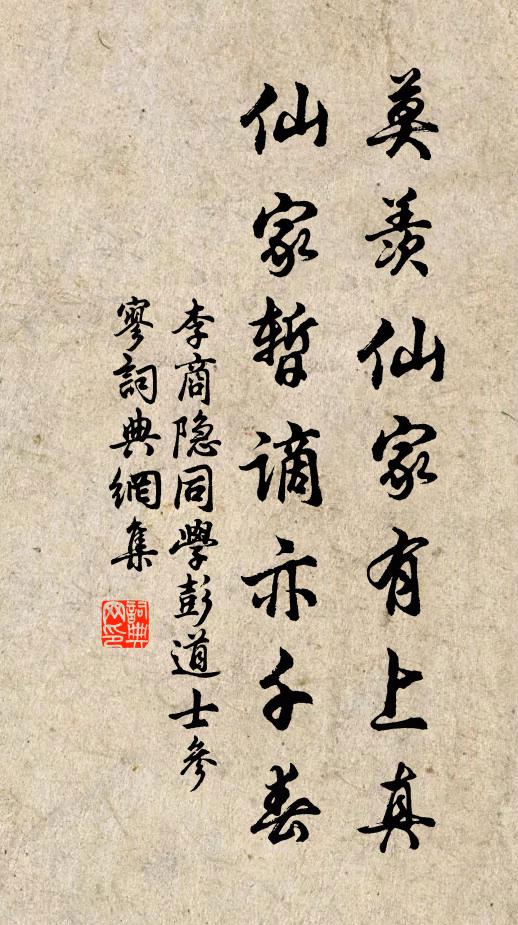 莫羨仙家有上真
仙家暫謫亦千春
李商隐同學彭道士參
寥詞典網集
詞典
网印